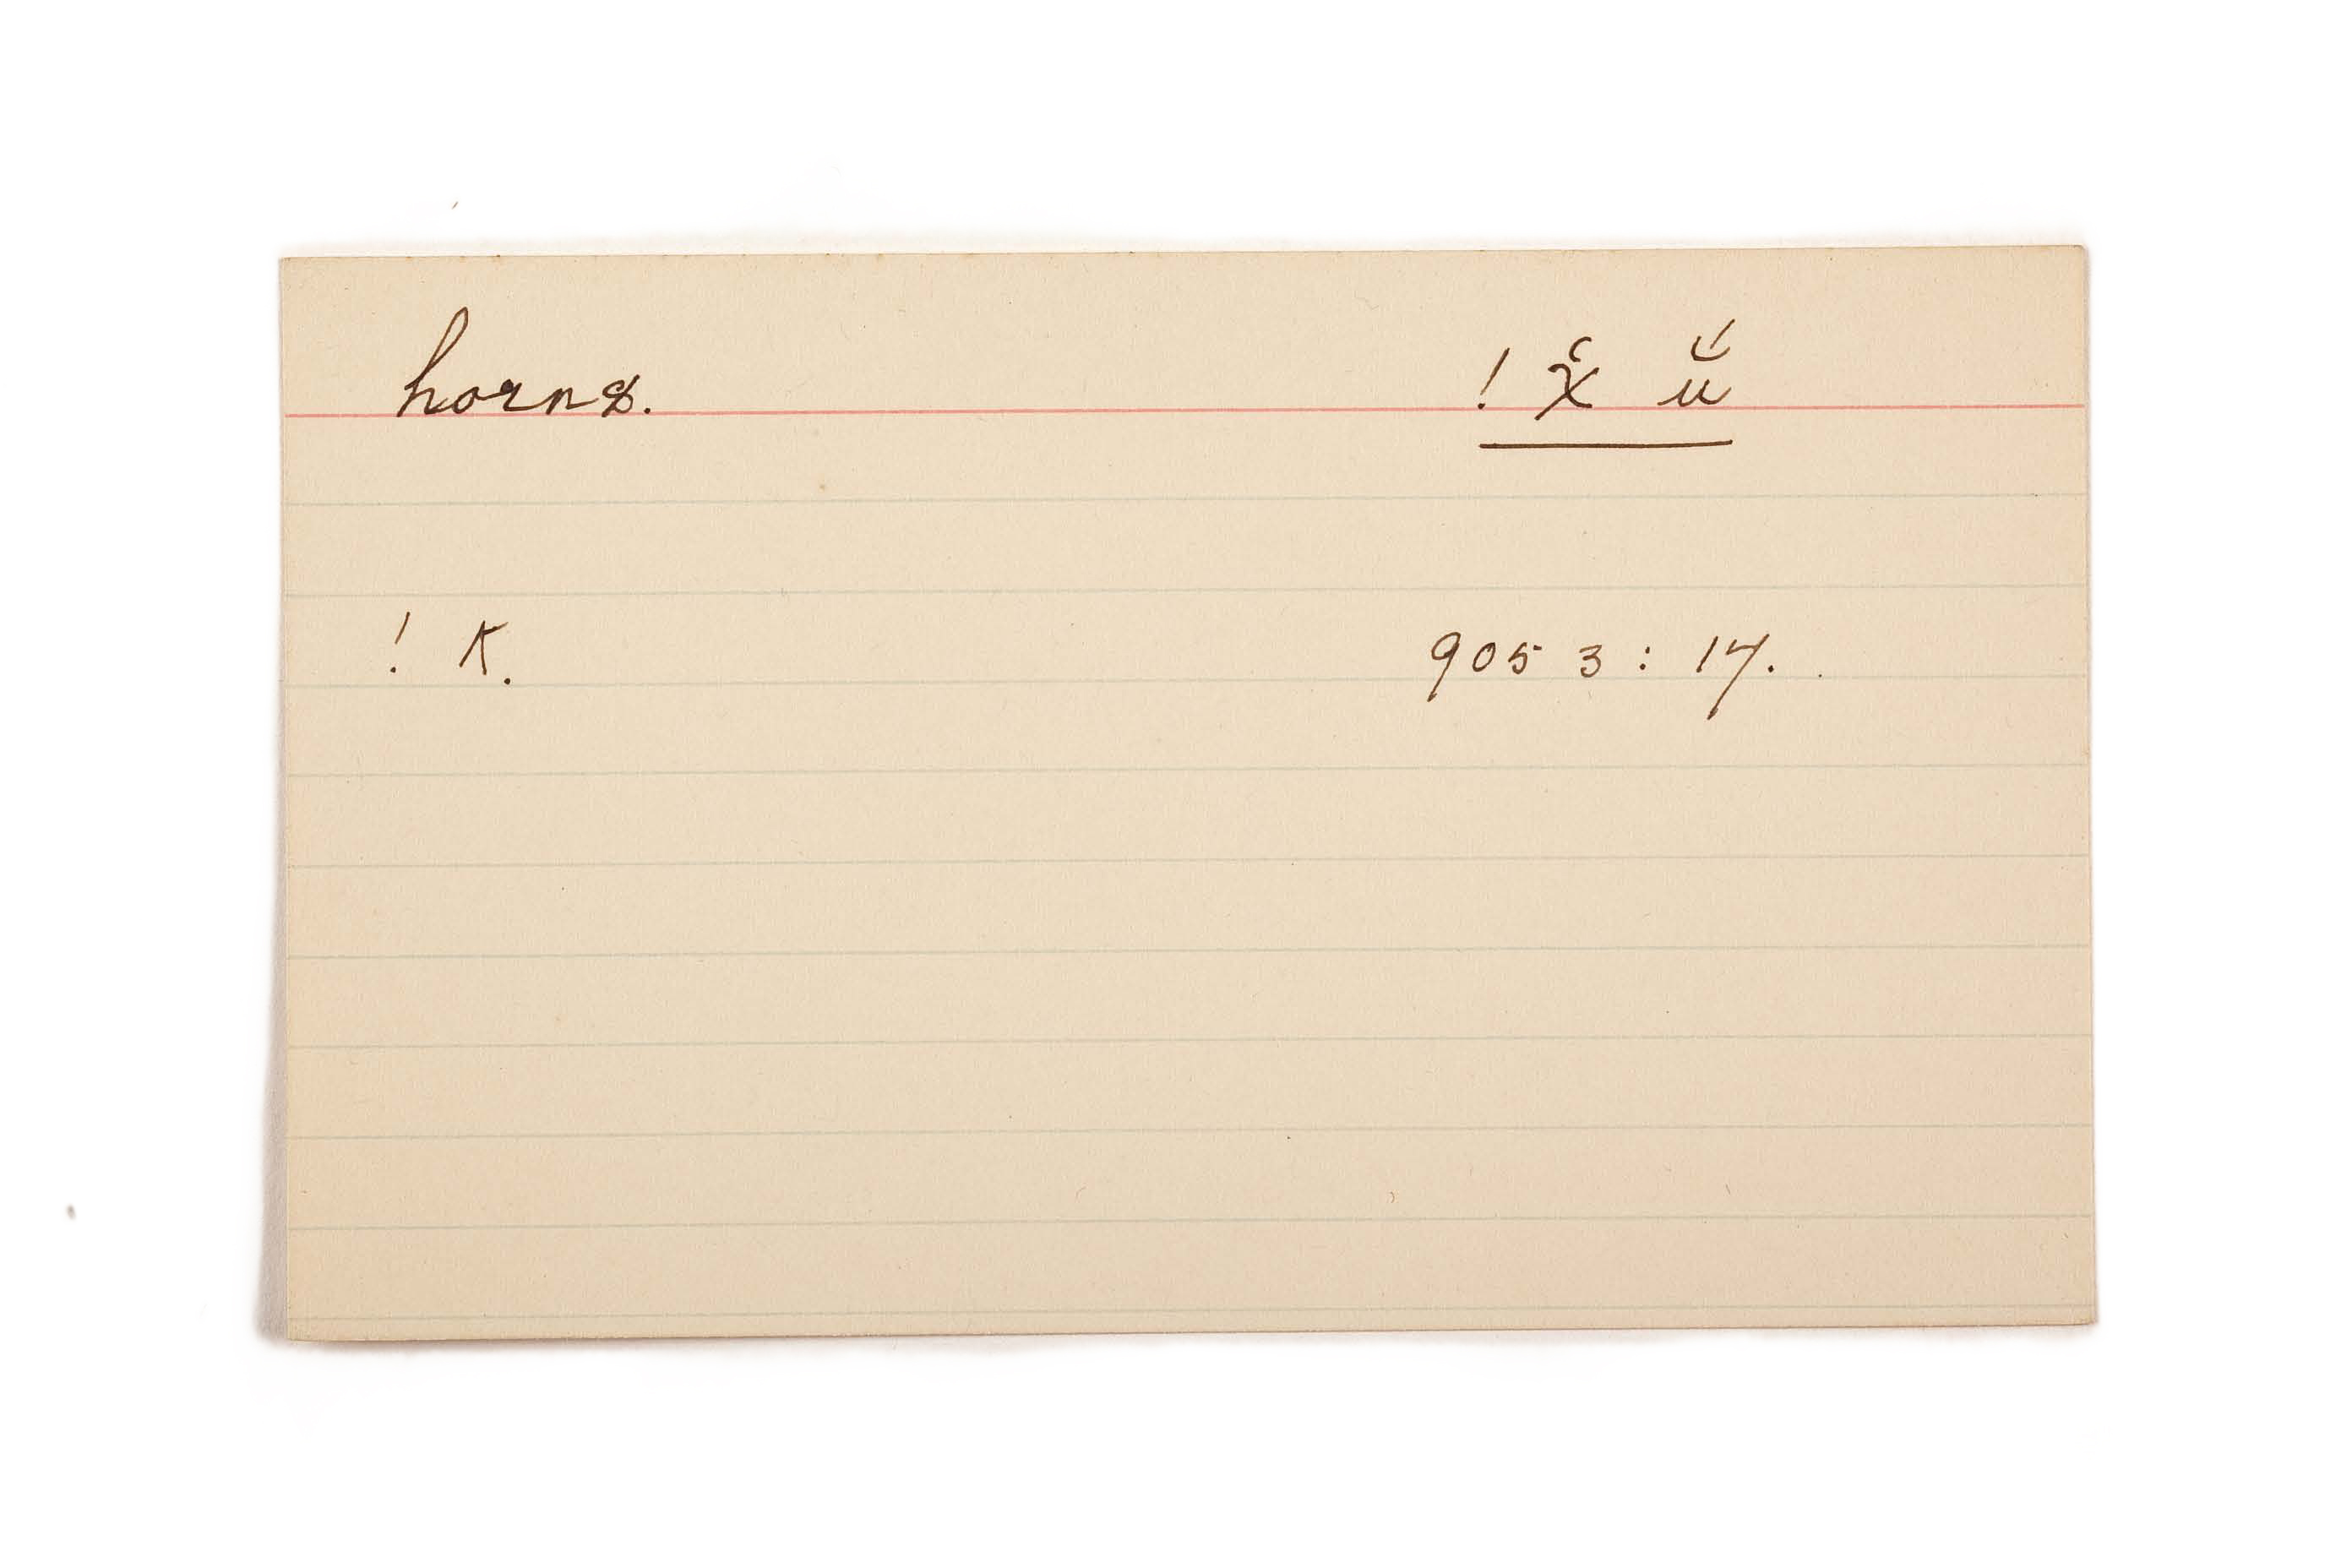 horns. ! χ̔ ŭ́
! K. 9053 : 17.